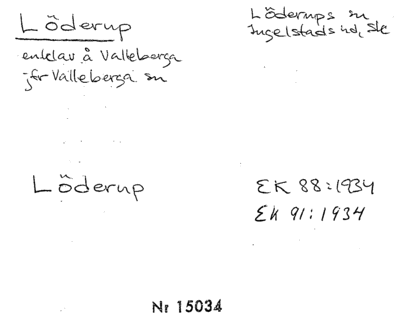 Löderup
enklav å Valleberga
jfr Valleberga sn
Löderups sn
Ingelstads hd, Sk
Löderup
EK 88:1934
EK 91:1934
Nr 15034